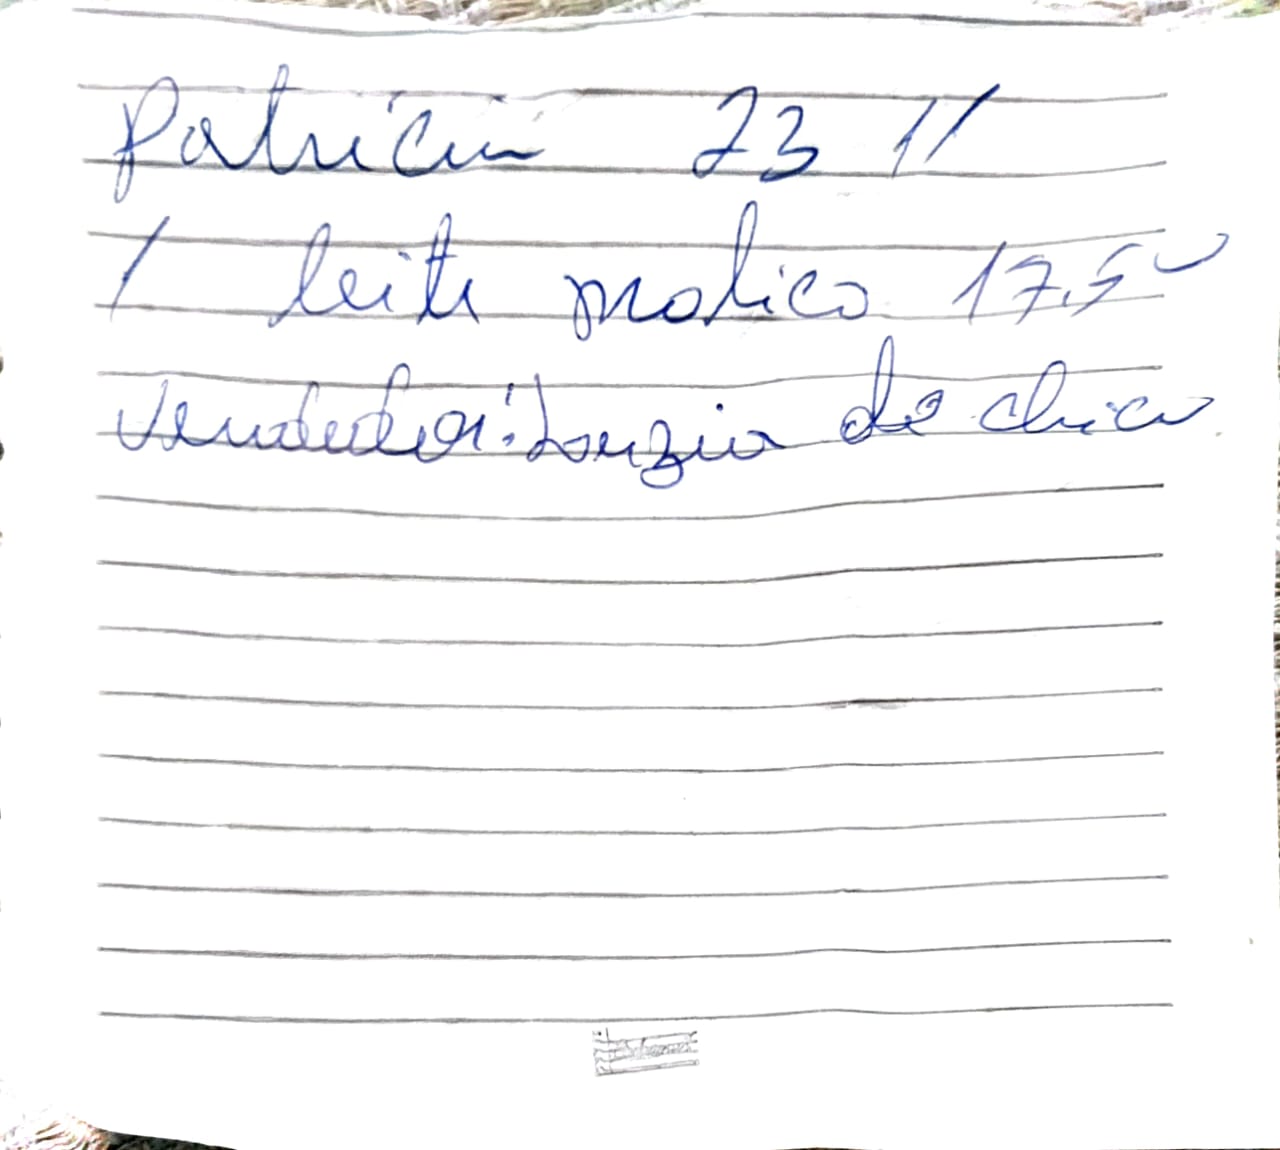 Patricia 23 11
1 leite pratico 17,50
Vendedor: Luzia de chico